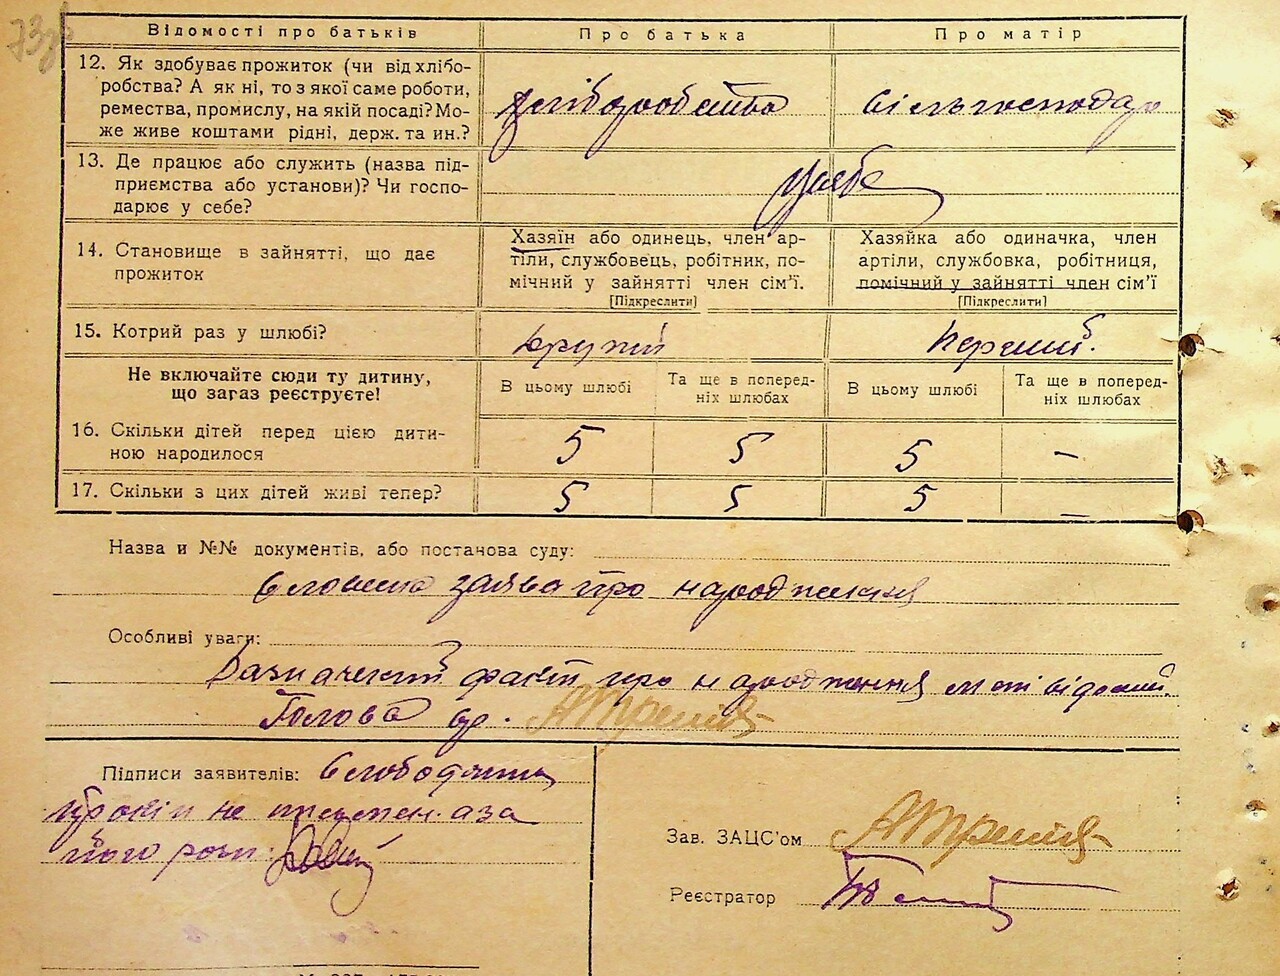 73зв
Відомості про батьків Про батька Про матір
12. Як здобуває прожиток (чи від хлібо-
робства? А як ні, то з якої саме роботи,
ремества, промислу, на якій посаді? Мо-
же живе коштами рідні, держ. та ин.?
хліборобство сільгосподар
13. Де працює або служить (назва під-
приємства або установи)? Чи госпо-
дарює у себе?
у себе
14. Становище в зайнятті, що дає
прожиток
Хазяїн або одинець, член ар-
тіли, службовець, робітник, по-
мічний у зайнятті член сім'ї.
[Підкреслити]
Хазяйка або одиначка, член
артіли, службовка, робітниця,
помічний у зайнятті член сім'ї
[Підкреслити]
15. Котрий раз у шлюбі? другий перший.
Не включайте сюди ту дитину,
що загаз реєструєте!
В цьому шлюбі
Та ще в поперед-
ніх шлюбах
В цьому шлюбі
Та ще в попере-
ніх шлюбах
16. Скільки дітей перед цією дити-
ною народилося
5 5 5 –
17. Скільки з цих дітей живі тепер? 5 5 5 –
Назва и №№ документів, або постачова суду:
словесна заява про народження
Особливі уваги:
Зазначений факт про народження мені відомий.
Голова
Підписи заявителів:
Прокіп не письмен. а за
його розп.
Зав. ЗАЦС'ом
Реєстратор